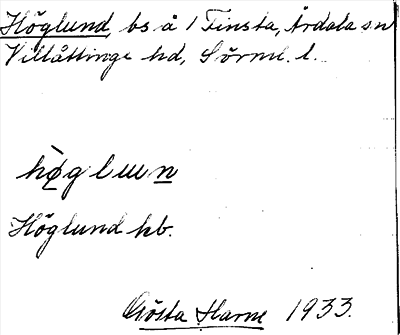 Höglund, bs å 1 Tinsta, Årdala sn
Villåttinge hd, Sörml. l.
hø̀gluun
Höglund hb.
Gösta Harne 1933.